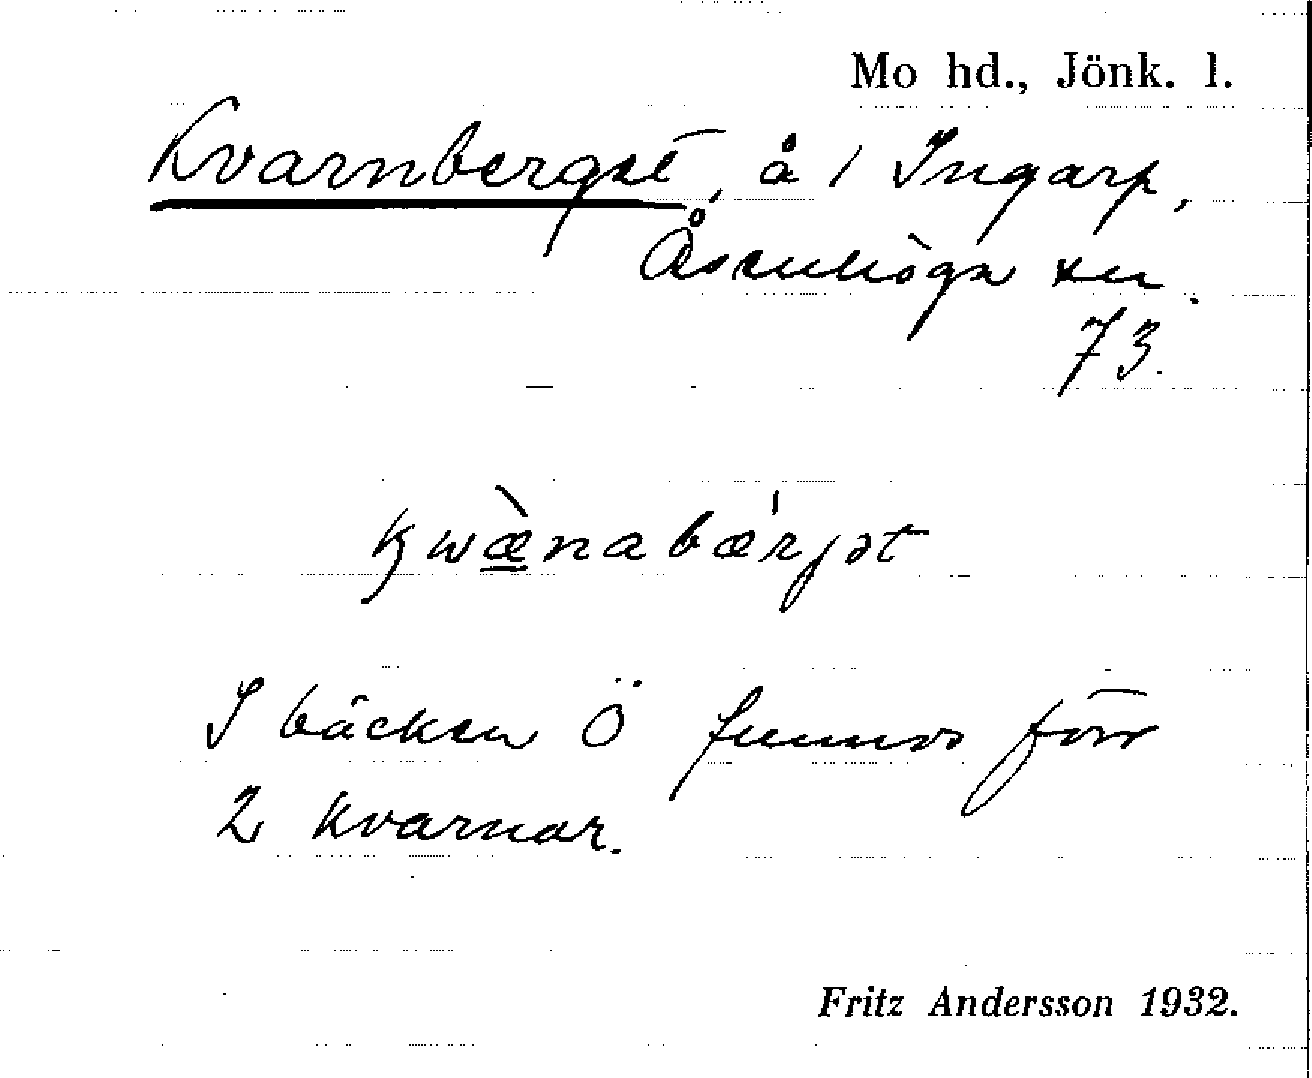 Mo hd., Jönk. l.
Kvarnberget, å 1 Ingarp,
Åsenhöga sn.
73.
kwæ̀nabæ'rjət
I bäcken Ö funnos förr
2 kvarnar.
Fritz Andersson 1932.